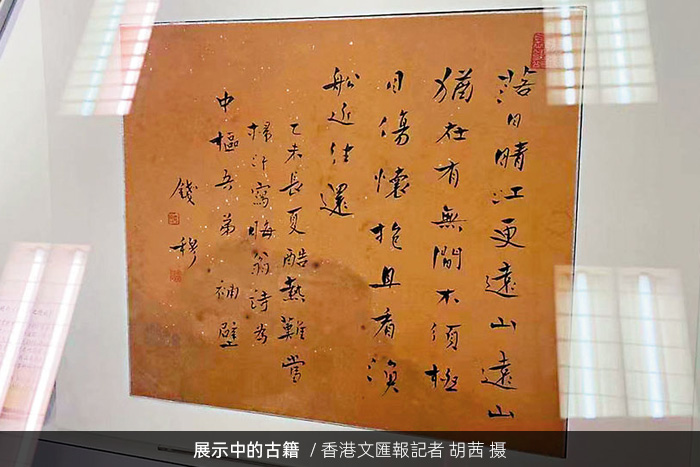 落日晴江更遠山遠山
猶在有無間不須極
目傷懷抱且看漁
船近往還
乙未長夏酷熱難當
揮汗寫晦翁詩為
中樞吾弟補壁
錢穆
展示中的古籍 / 香港文匯報記者 胡茜 攝